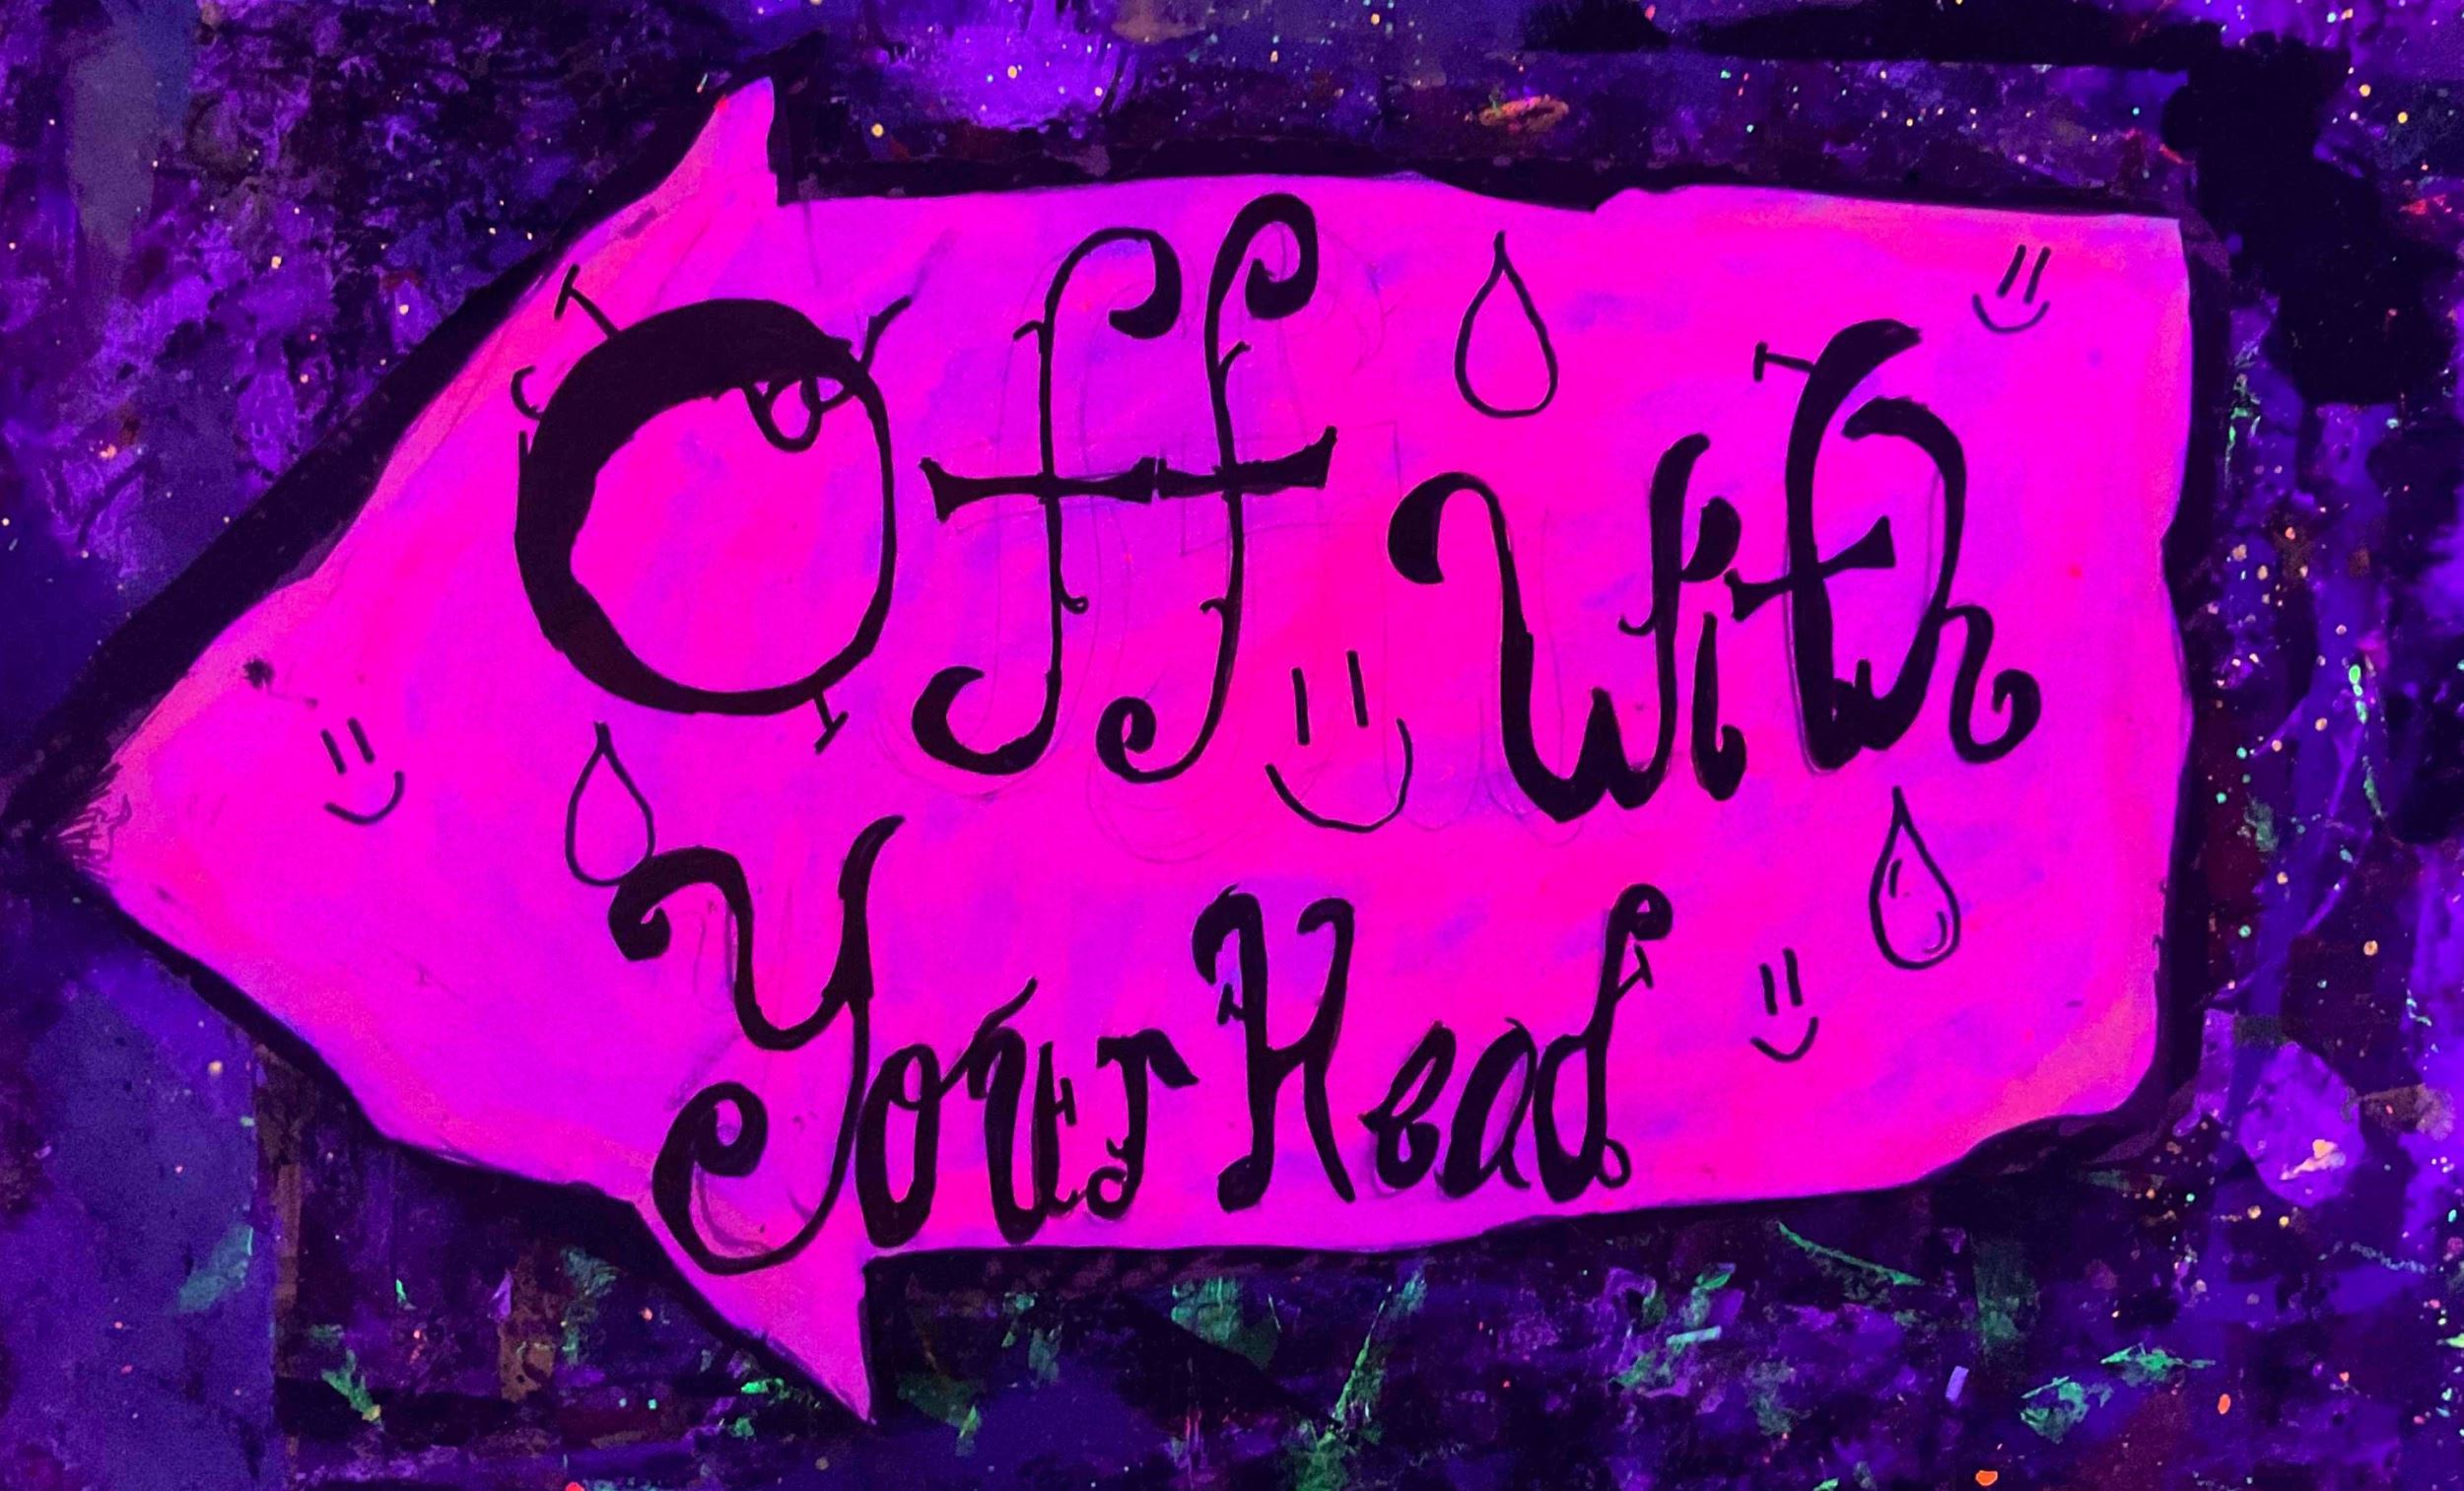 Off With
Your Head